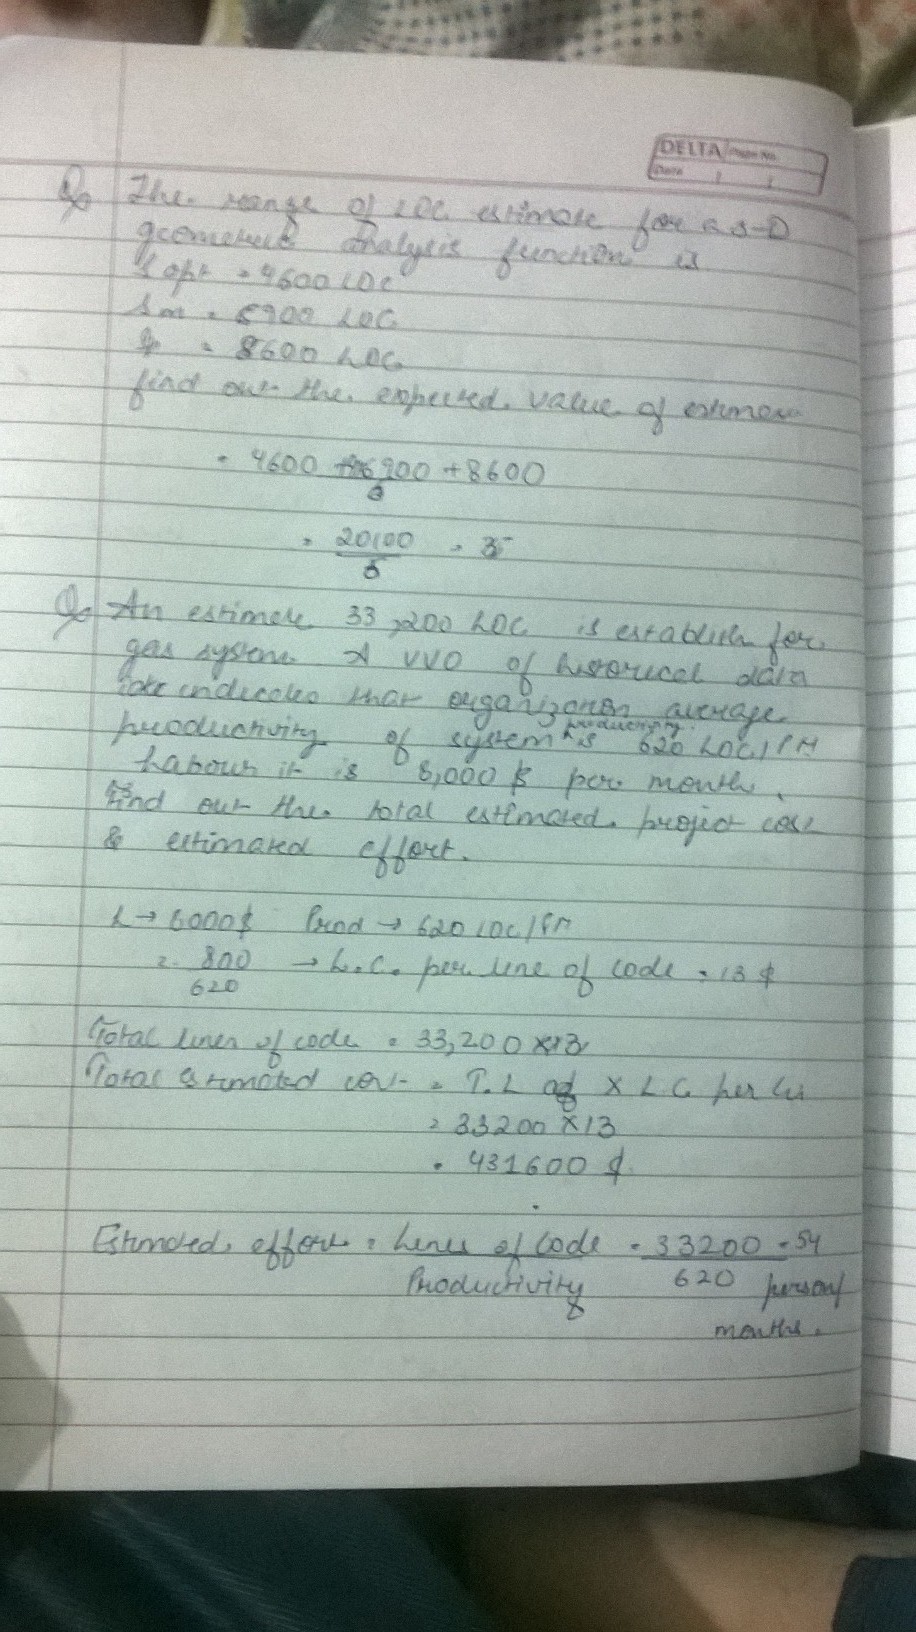 DELTA Page No.
Date / /
Q. The range of LOC estimate for a 3-D
geometric analysis function is
S opt = 4600 LOC
Sm = 6900 LOC
= 8600 LOC
find out the expected value of estimate
= 4600 + 6900 + 8600
= 20100
Q. An estimate 33,200 LOC is establish for
gas system. A of historical data
indicates that organization average
productivity
productivity of system is 620 LOC/PM
Labour is 8,000 $ per month.
Find out the total estimated project cost
& estimated effort.
L → 8000$ Prod → 620 LOC/PM
= 800 → L.C. per line of code = 13 $
620
Total lines of code = 33,200 x 13
Total estimated cost = T.L of x L.C. per
= 33200 x 13
= 431600 $
Estimated effort = Lines of code = 33200 = 54
Productivity 620 person/
months.